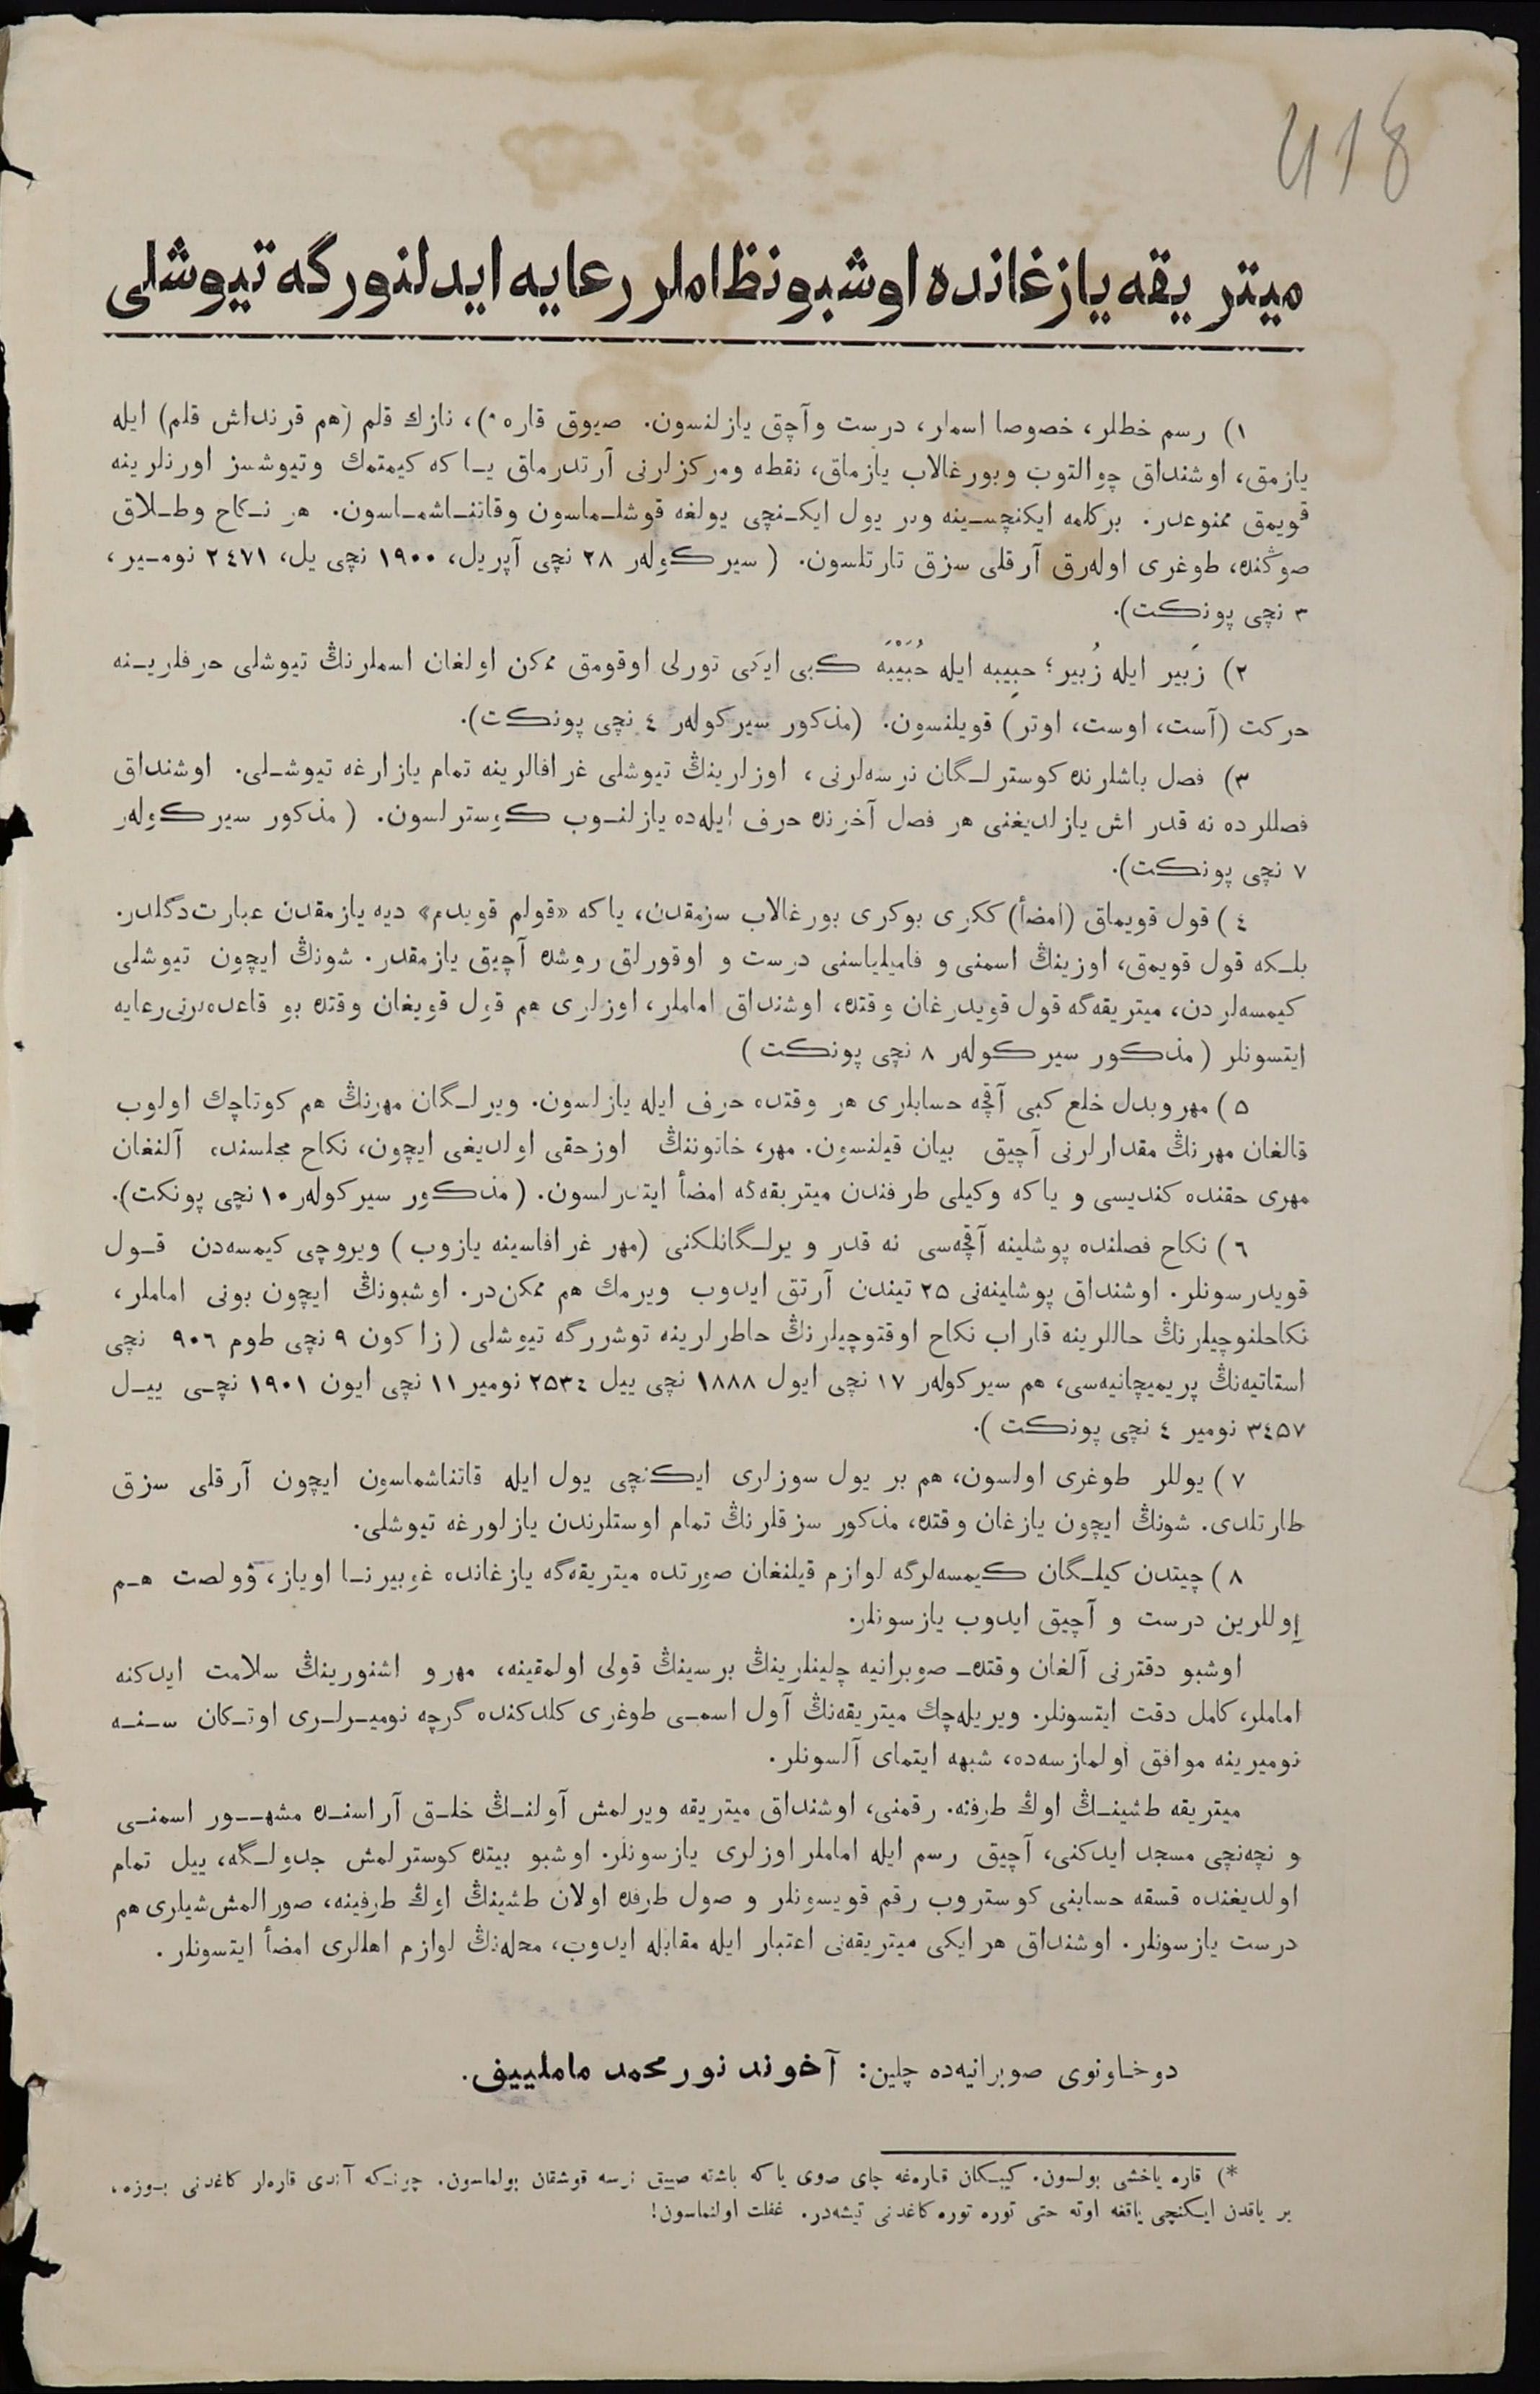 418
میتریقه یازغانده اوشبو نظاملر رعایه ایدلنورگه تیوشلی
١) رسم خطلر، خصوصا اسملر، درست وآچق یازلنسون. صیوق قاره *)، نازك قلم (هم قرنداش قلم) ایله
یازمق، اوشنداق چوالتوب وبورغالاب یازماق، نقطه ومركزلرنی آرتدرماق یــا كه كیمتمك وتیوشسز اورنلرینه
قویمق ممنوعدر. بركلمه ایكنچســینه وبر یول ایكــنچی یولغه قوشلــماسون وقاتنــاشمــاسون. هر نــكاح وطــلاق
صوڭنده، طوغری اولەرق آرقلی سزق تارتلسون. (سیركولەر ٢٨ نچی آپریل، ١٩٠٠ نچی یل، ٢٤٧١ نومــیر،
٣ نچی پونكت).
٢) زَبیر ایله زُبیر؛ حبِیبه ایله حُبَیْبَه كبی ایكی تورلی اوقومق ممكن اولغان اسملرنڭ تیوشلی حرفلریــنه
حركت (آست، اوست، اوتر) قویلنسون. (مذكور سیركولەر ٤ نچی پونكت).
٣) فصل باشلرنده كوسترلــگان نرسەلرنی، اوزلرینڭ تیوشلی غرافالرینه تمام یازارغه تیوشــلی. اوشنداق
فصللرده نه قدر اش یازلدیغنی هر فصل آخرنده حرف ایله‌ده یازلنــوب كوسترلسون. (مذكور سیركولەر
٧ نچی پونكت).
٤) قول قویماق (امضأ) ككری بوكری بورغالاب سزمقدن، یاكه «قولم قویدم» دیه یازمقدن عبارت‌دگلدر.
بلــكه قول قویمق، اوزینڭ اسمنی و فامیلیاسنی درست و اوقورلق روشده آچیق یازمقدر. شونڭ ایچون تیوشلی
كیمسەلردن، میتریقه‌گه قول قویدرغان وقتده، اوشنداق اماملر، اوزلری هم قول قویغان وقتده بو قاعده‌لرنی رعایه
ایتسونلر (مذكور سیركولەر ٨ نچی پونكت)
٥) مهر وبدل خلع كبی آقچه حسابلری هر وقتده حرف ایله یازلسون. ویرلــگان مهرنڭ هم كوتاچك اولوب
قالغان مهرنڭ مقدارلرنی آچیق بیان قیلنسون. مهر، خاتوننڭ اوزحقی اولدیغی ایچون، نكاح مجلسنده آلنغان
مهری حقنده كندیسی و یاكه وكیلی طرفندن میتریقه‌گه امضأ ایتدرلسون. (مذكور سیركولەر ١٠ نچی پونكت).
٦) نكاح فصلنده پوشلینه آقچەسی نه قدر ویرلــگانلكنی (مهر غرافاسینه یازوب) ویروچی كیمسەدن قــول
قویدرسونلر. اوشنداق پوشلینه‌نی ٢٥ تیندن آرتق ایدوب ویرمك هم ممكن‌در. اوشبونڭ ایچون بونی اماملر،
نكاحلنوچیلرنڭ حاللرینه قاراب نكاح اوقتوچیلرنڭ خاطرلرینه توشررگه تیوشلی (زاكون ٩ نچی طوم ٩٠٦ نچی
استاتیه‌نڭ پریمیچانیه‌سی، هم سیركولەر ١٧ نچی ایول ١٨٨٨ نچی ییل ٢٥٣٤ نومیر ١١ نچی ایون ١٩٠١ نچــی ییــل
٣٤٥٧ نومیر ٤ نچی پونكت).
٧) یوللر طوغری اولسون، هم بر یول سوزلری ایكنچی یول ایله قاتناشماسون ایچون آرقلی سزق
طارتلدی. شونڭ ایچون یازغان وقتده، مذكور سزقلرنڭ تمام اوستلرندن یازلورغه تیوشلی.
٨) چیتدن كیلــگان كیمسەلرگه لوازم قیلنغان صورتده میتریقه‌گه یازغانده غوبیرنــا اویاز، ۋولصت هــم
اوللرین درست و آچیق ایدوب یازسونلر.
اوشبو دفترنی آلغان وقتده صوبرانیه چلینلرینڭ برسینڭ قولی اولمقینه، مهرو اشنورینڭ سلامت ایدكنه
اماملر، كامل دقت ایتسونلر. ویریلەچك میتریقه‌نڭ آول اسمــی طوغری كلدكنده گرچه نومیــرلــری اوتــكان ســنــه
نومیرینه موافق اولمازسه‌ده، شبهه ایتمای آلسونلر.
میتریقه طشینــڭ اوڭ طرفنه. رقمنی، اوشنداق میتریقه ویرلمش آولنــڭ خلــق آراسنــده مشهــور اسمنــی
و نچەنچی مسجد ایدكنی، آچیق رسم ایله اماملر اوزلری یازسونلر. اوشبو بیتده كوسترلمش جدولــگه، ییل تمام
اولدیغنده قسقه حسابنی كوستروب رقم قویسونلر و صول طرفده اولان طشینڭ اوڭ طرفینه، صورالمش شیلری هم
درست یازسونلر. اوشنداق هر ایكی میتریقه‌نی اعتبار ایله مقابله ایدوب، محله‌نڭ لوازم اهللری امضأ ایتسونلر.
دوخــاونوی صوبرانیه‌ده چلین: آخوند نورمحمد ماملییف.
*) قاره یاخشی بولسون. كیبــكان قاره‌غه چای صوی یاكه باشته صییق نرسه قوشقان بولماسون. چونــكه آندی قارەلر كاغدنی بــوزه،
بر یاقدن ایكنچی یاقغه اوته حتی توره توره كاغدنی تیشه‌در. غفلت اولنماسون!